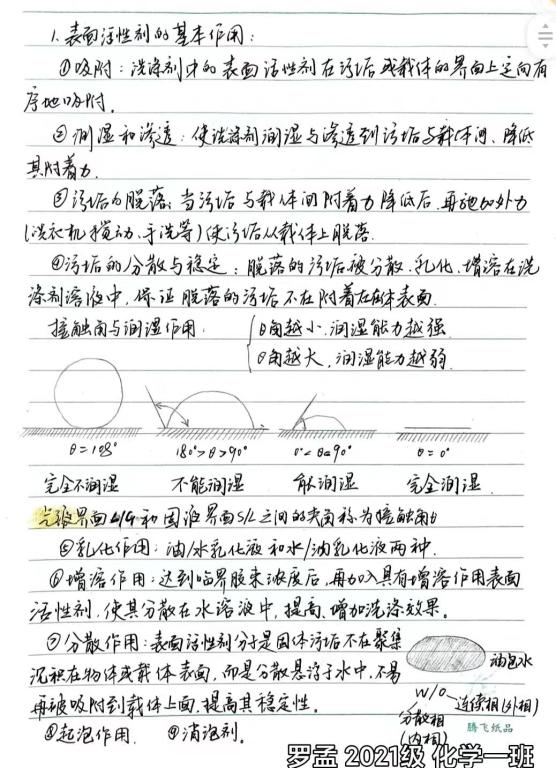 1.表面活性剂的基本作用:
①吸附:洗涤剂中的表面活性剂在污垢或载体的界面上定向有
序地吸附.
②润湿和渗透:使洗涤剂润湿与渗透到污垢与载体间、降低
其附着力.
③污垢的脱落:当污垢与载体间附着力降低后.再施加外力
(洗衣机搅动、手洗等)使污垢从载体上脱落.
④污垢的分散与稳定:脱落的污垢被分散.乳化、增溶在洗
涤剂溶液中,保证脱落的污垢不在附着在表面.
接触角与润湿作用:
θ角越小.润湿能力越强.
θ角越大,润湿能力越弱.
θ=180° 180°>θ>90° 0°<θ≤90° θ=0°
完全不润湿 不能润湿 能润湿 完全润湿.
气液界面L/G和固液界面S/L之间的夹角称为接触角θ
⑤乳化作用:油/水乳化液和水/油乳化液两种.
⑥增溶作用:达到临界胶束浓度后,再加入具有增溶作用表面
活性剂.使其分散在水溶液中,提高、增加洗涤效果。
⑦分散作用:表面活性剂分子是固体污垢不在聚集
沉积在物体或载体表面,而是分散悬浮于水中,不易
再被吸附到载体上面,提高其稳定性。
油包水
W/O
分散相
(内相)
连续相(外相)
腾飞纸品
⑧起泡作用. ⑨消泡剂。
罗孟 2021级 化学一班